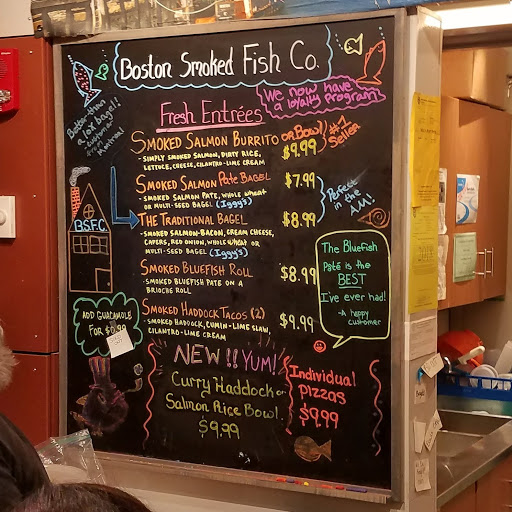 Boston Smoked Fish Co.
We now have
a loyalty program!
Fresh Entrées
Better than
a lox bagel!
Smoked Salmon Burrito or Bowl!
$9.99
#1
Seller
- Simply smoked salmon, dirty rice,
lettuce, cheese, cilantro-lime cream
Smoked Salmon Pate Bagel
$7.99
- Smoked salmon pate, whole wheat
or multi-seed bagel (Iggy's)
Perfect
in the
A.M!
The Traditional Bagel
$8.99
- Smoked salmon-bacon, cream cheese,
capers, red onion, whole wheat or
multi-seed bagel (Iggy's)
B.S.F.C.
Smoked Bluefish Roll
$8.99
- Smoked bluefish pate on a
brioche roll
The Bluefish
Paté is the
BEST
I've ever had!
- A happy
customer
Smoked Haddock Tacos (2)
$9.99
- Smoked haddock, cumin-lime slaw,
cilantro-lime cream
Add Guacamole
For $0.99
NEW!! YUM!
Curry Haddock or
Salmon Rice Bowl.
$9.99
Individual
pizzas
$9.99